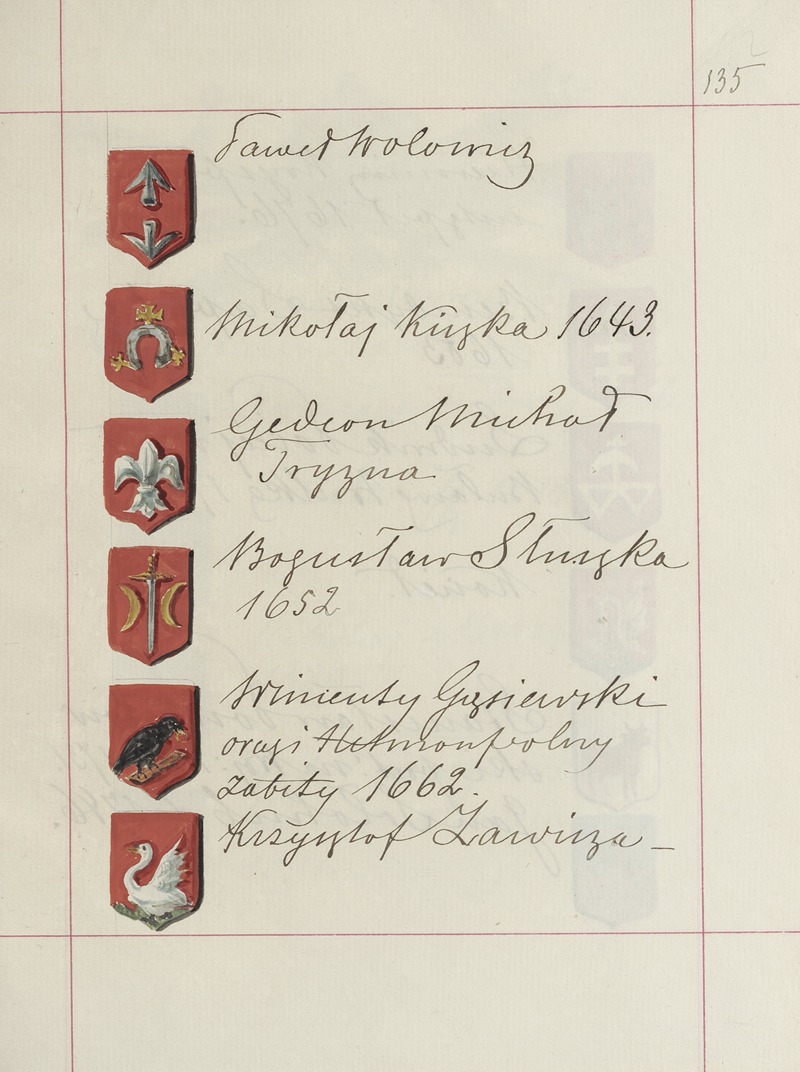 135
Paweł Wolowicz
Mikołaj Kiszka 1643.
Gedeon Michał
Tryzna
Bogusław Słuszka
1652
Wincenty Gąsiewski
orazi Hetmonpolny
Zabity 1662.
Krzysztof Zawisza –